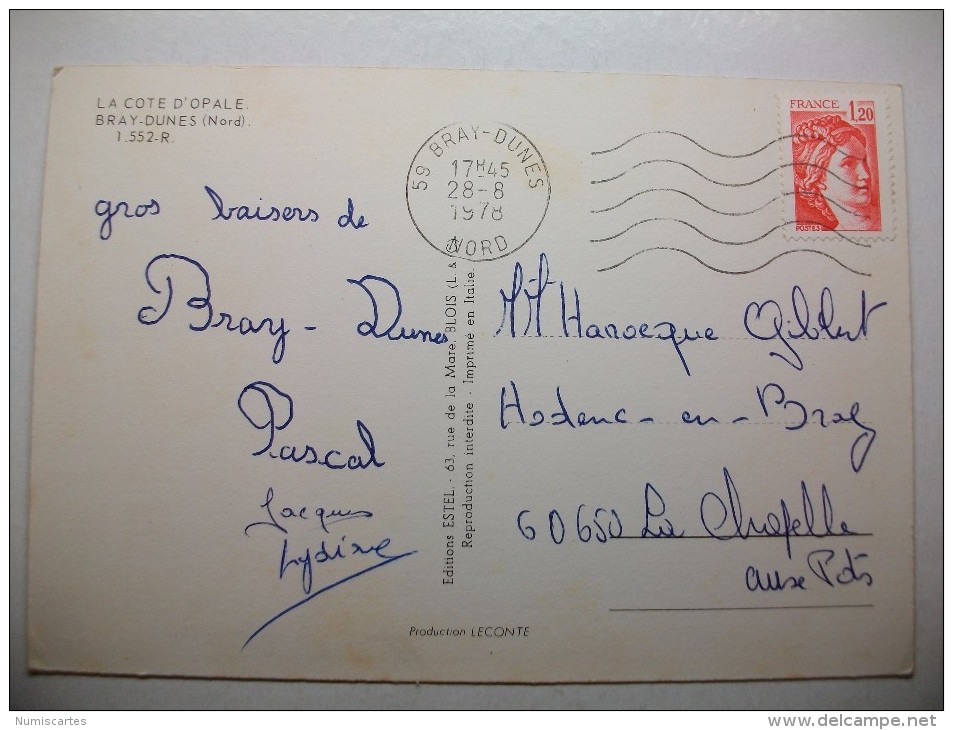 LA COTE D'OPALE.
BRAY-DUNES (Nord).
1.552-R.
59 BRAY-DUNES
17H45
28-8
1978
NORD
FRANCE 1,20
POSTES
gros baisers de
Bray - Dunes
Pascal
Jacques
Lydine
Editions ESTEL. - 63, rue de la Mare, BLOIS (L. &
Reproduction interdite - Imprimé en Italie.
MM Harocque Gilbert
Hodenc-en-Bray
60650 La Chapelle
aux Pots
Production LECONTE
Numiscartes
www.delcampe.net